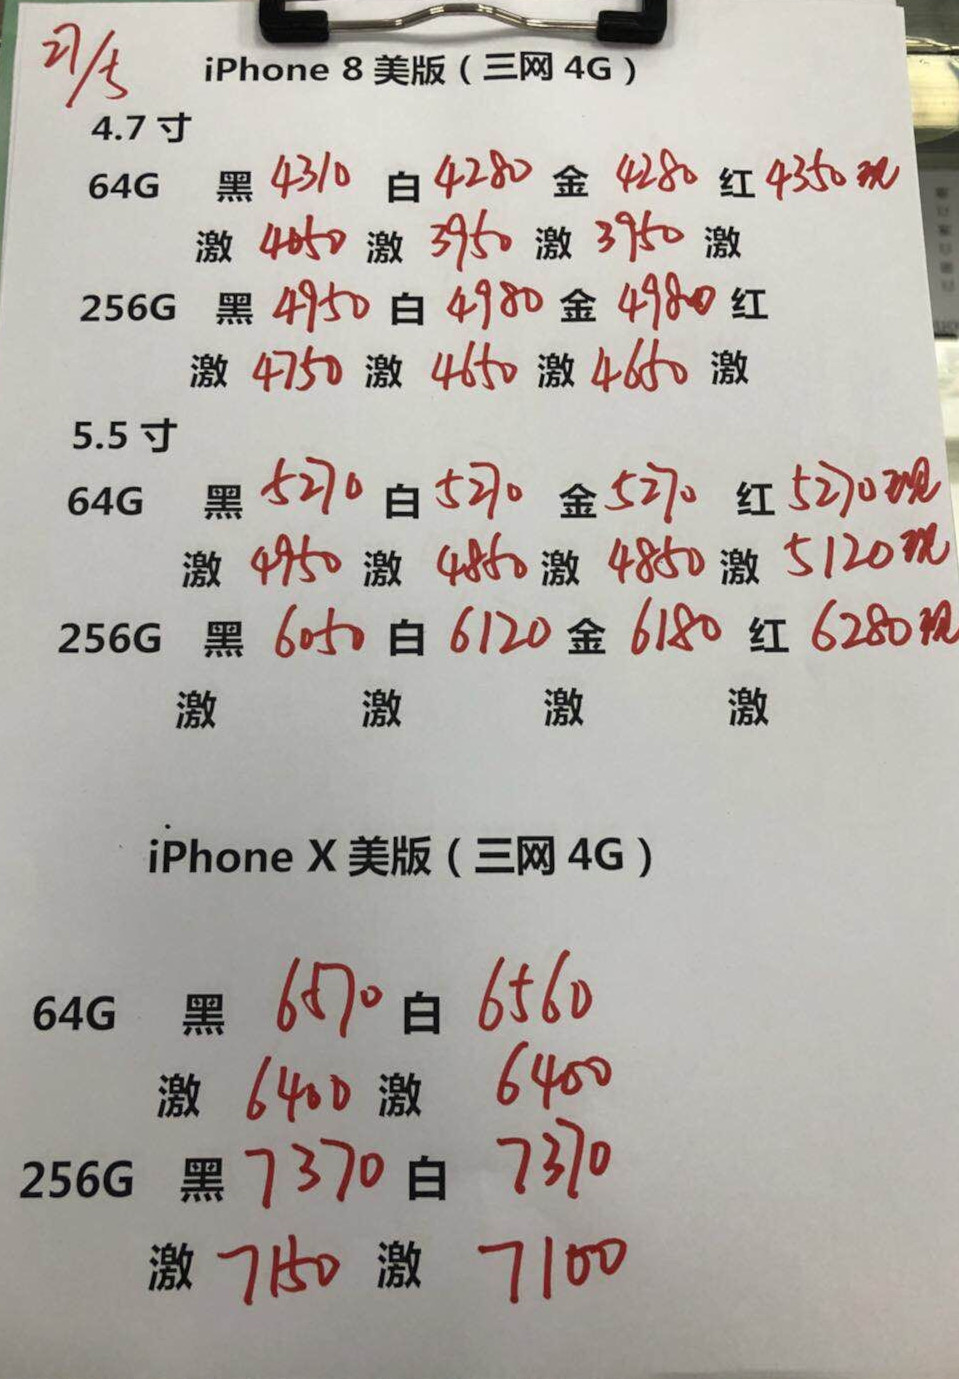 27/5
iPhone 8 美版（三网 4G）
4.7 寸
64G 黑 4310 白 4280 金 4280 红 4350 现
激 4050 激 3950 激 3950 激
256G 黑 4950 白 4980 金 4980 红
激 4750 激 4650 激 4650 激
5.5 寸
64G 黑 5270 白 5270 金 5270 红 5270 现
激 4950 激 4850 激 4850 激 5120 现
256G 黑 6050 白 6120 金 6180 红 6280 现
激 激 激 激
iPhone X 美版（三网 4G）
64G 黑 6570 白 6560
激 6400 激 6400
256G 黑 7370 白 7370
激 7150 激 7100